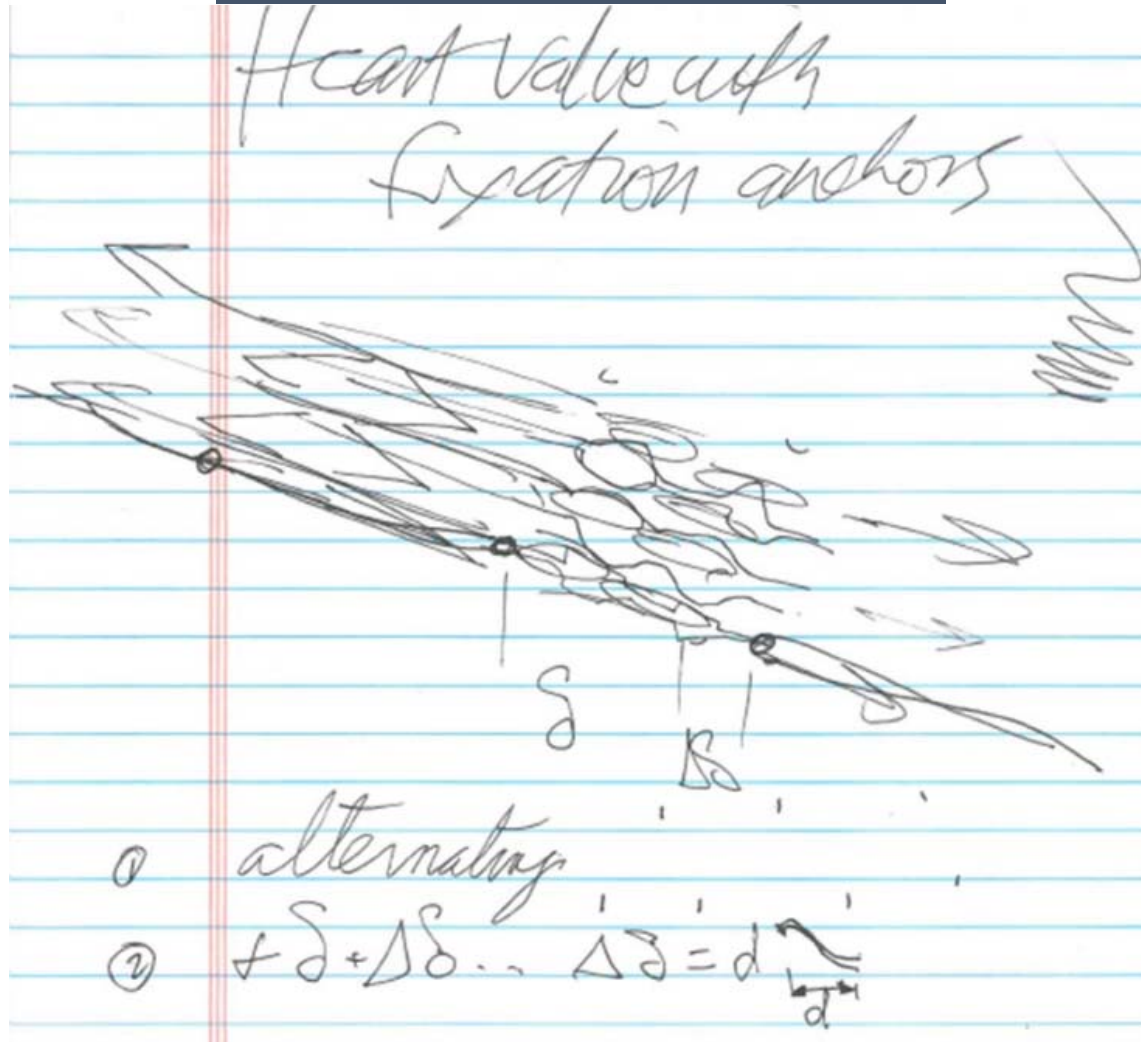 Heart Valve with
fixation anchors
δ
Δδ
① alternating
② + δ + Δδ... Δδ = d
d